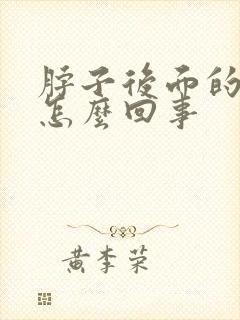 脖子後面的
怎麼回事
黃李荣